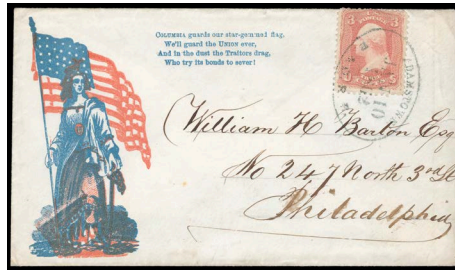 COLUMBIA guards our star-gemmed flag,
We'll guard the UNION ever,
And in the dust the Traitors drag,
Who try its bonds to sever!
3 3
William H Barton Esq
No 247 North 3rd St
Philadelphia